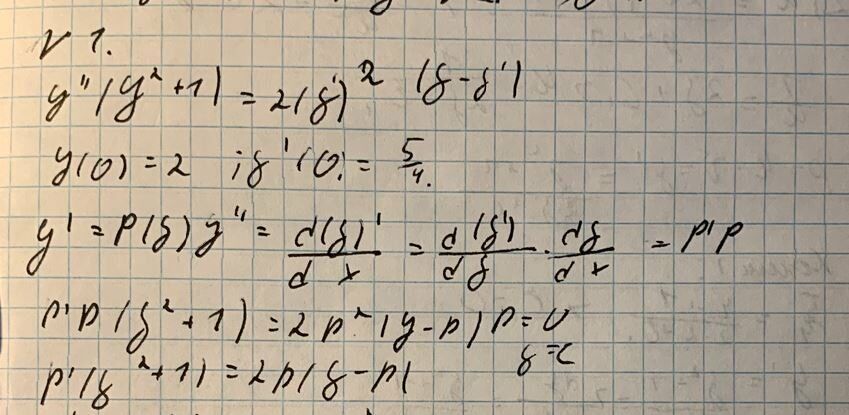 № 1.
y''(y²+1) = 2(y')² (y-y')
y(0) = 2 ; y'(0) = 5/4.
y' = P(y) y'' = d(y)'/dx = d(y')/dy · dy/dx = P'P
P'P(y²+1) = 2P²(y-P) P=0
y=C
P'(y²+1) = 2P(y-P)